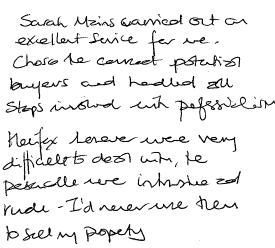 Sarah Mains carried out an
excellent service for me.
Chose the correct potential
buyers and handled all
steps involved with professionalism
Halifax however were very
difficult to deal with, the
personnel were intrusive and
rude - I'd never use them
to sell my property